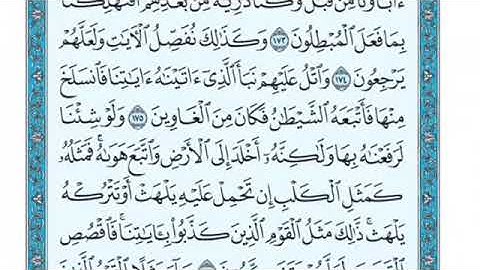 ءَابَآؤُنَا مِن قَبْلُ وَكُنَّا ذُرِّيَّةً مِّنۢ بَعْدِهِمْ أَفَتُهْلِكُنَا
بِمَا فَعَلَ ٱلْمُبْطِلُونَ ١٧٣ وَكَذَٰلِكَ نُفَصِّلُ ٱلْءَايَٰتِ وَلَعَلَّهُمْ
يَرْجِعُونَ ١٧٤ وَٱتْلُ عَلَيْهِمْ نَبَأَ ٱلَّذِىٓ ءَاتَيْنَٰهُ ءَايَٰتِنَا فَٱنسَلَخَ
مِنْهَا فَأَتْبَعَهُ ٱلشَّيْطَٰنُ فَكَانَ مِنَ ٱلْغَاوِينَ ١٧٥ وَلَوْ شِئْنَا
لَرَفَعْنَٰهُ بِهَا وَلَٰكِنَّهُۥٓ أَخْلَدَ إِلَى ٱلْأَرْضِ وَٱتَّبَعَ هَوَىٰهُ ۚ فَمَثَلُهُۥ
كَمَثَلِ ٱلْكَلْبِ إِن تَحْمِلْ عَلَيْهِ يَلْهَثْ أَوْ تَتْرُكْهُ
يَلْهَث ۚ ذَّٰلِكَ مَثَلُ ٱلْقَوْمِ ٱلَّذِينَ كَذَّبُوا۟ بِـَٔايَٰتِنَا ۚ فَٱقْصُصِ